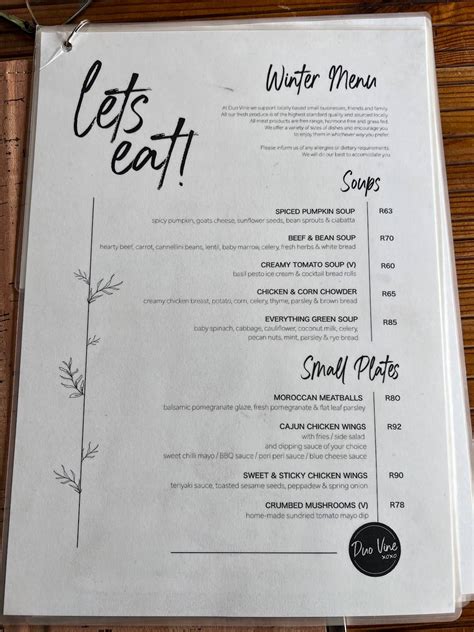 lets
eat!
Winter Menu
At Duo Vine we support locally based small businesses, friends and family.
All our fresh produce is of the highest standard quality and sourced locally.
All meat products are free range, hormone free and grass fed.
We offer a variety of sizes of dishes and encourage you
to enjoy them in whichever way you prefer.
Please inform us of any allergies or dietary requirements.
We will do our best to accomodate you.
Soups
SPICED PUMPKIN SOUP R63
spicy pumpkin, goats cheese, sunflower seeds, bean sprouts & ciabatta
BEEF & BEAN SOUP R70
hearty beef, carrot, cannellini beans, lentil, baby marrow, celery, fresh herbs & white bread
CREAMY TOMATO SOUP (V) R60
basil pesto ice cream & cocktail bread rolls
CHICKEN & CORN CHOWDER R65
creamy chicken breast, potato, corn, celery, thyme, parsley & brown bread
EVERYTHING GREEN SOUP R85
baby spinach, cabbage, cauliflower, coconut milk, celery,
pecan nuts, mint, parsley & rye bread
Small Plates
MOROCCAN MEATBALLS R80
balsamic pomegranate glaze, fresh pomegranate & flat leaf parsley
CAJUN CHICKEN WINGS R92
with fries / side salad
and dipping sauce of your choice
sweet chilli mayo / BBQ sauce / peri peri sauce / blue cheese sauce
SWEET & STICKY CHICKEN WINGS R90
teriyaki sauce, toasted sesame seeds, peppadew & spring onion
CRUMBED MUSHROOMS (V) R78
home-made sundried tomato mayo dip
Duo Vine
xoxo